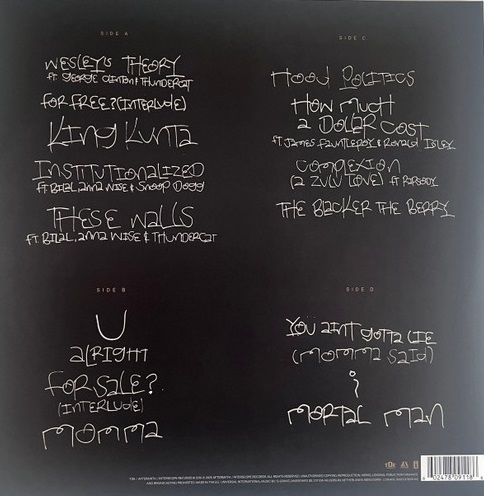 SIDE A
WESLEY'S THEORY
ft. GEORGE CLINTON & THUNDERCAT
FOR FREE? (INTERLUDE)
KING KUNTA
INSTITUTIONALIZED
ft. BILAL, ANNA WISE & SNOOP DOGG
THESE WALLS
ft. BILAL, ANNA WISE & THUNDERCAT
SIDE B
U
ALRIGHT
FOR SALE?
(INTERLUDE)
MOMMA
SIDE C
HOOD POLITICS
HOW MUCH
A DOLLAR COST
ft. JAMES FAUNTLEROY & RONALD ISLEY
COMPLEXION
(A ZULU LOVE) ft. RAPSODY
THE BLACKER THE BERRY
SIDE D
YOU AINT GOTTA LIE
(MOMMA SAID)
i
MORTAL MAN